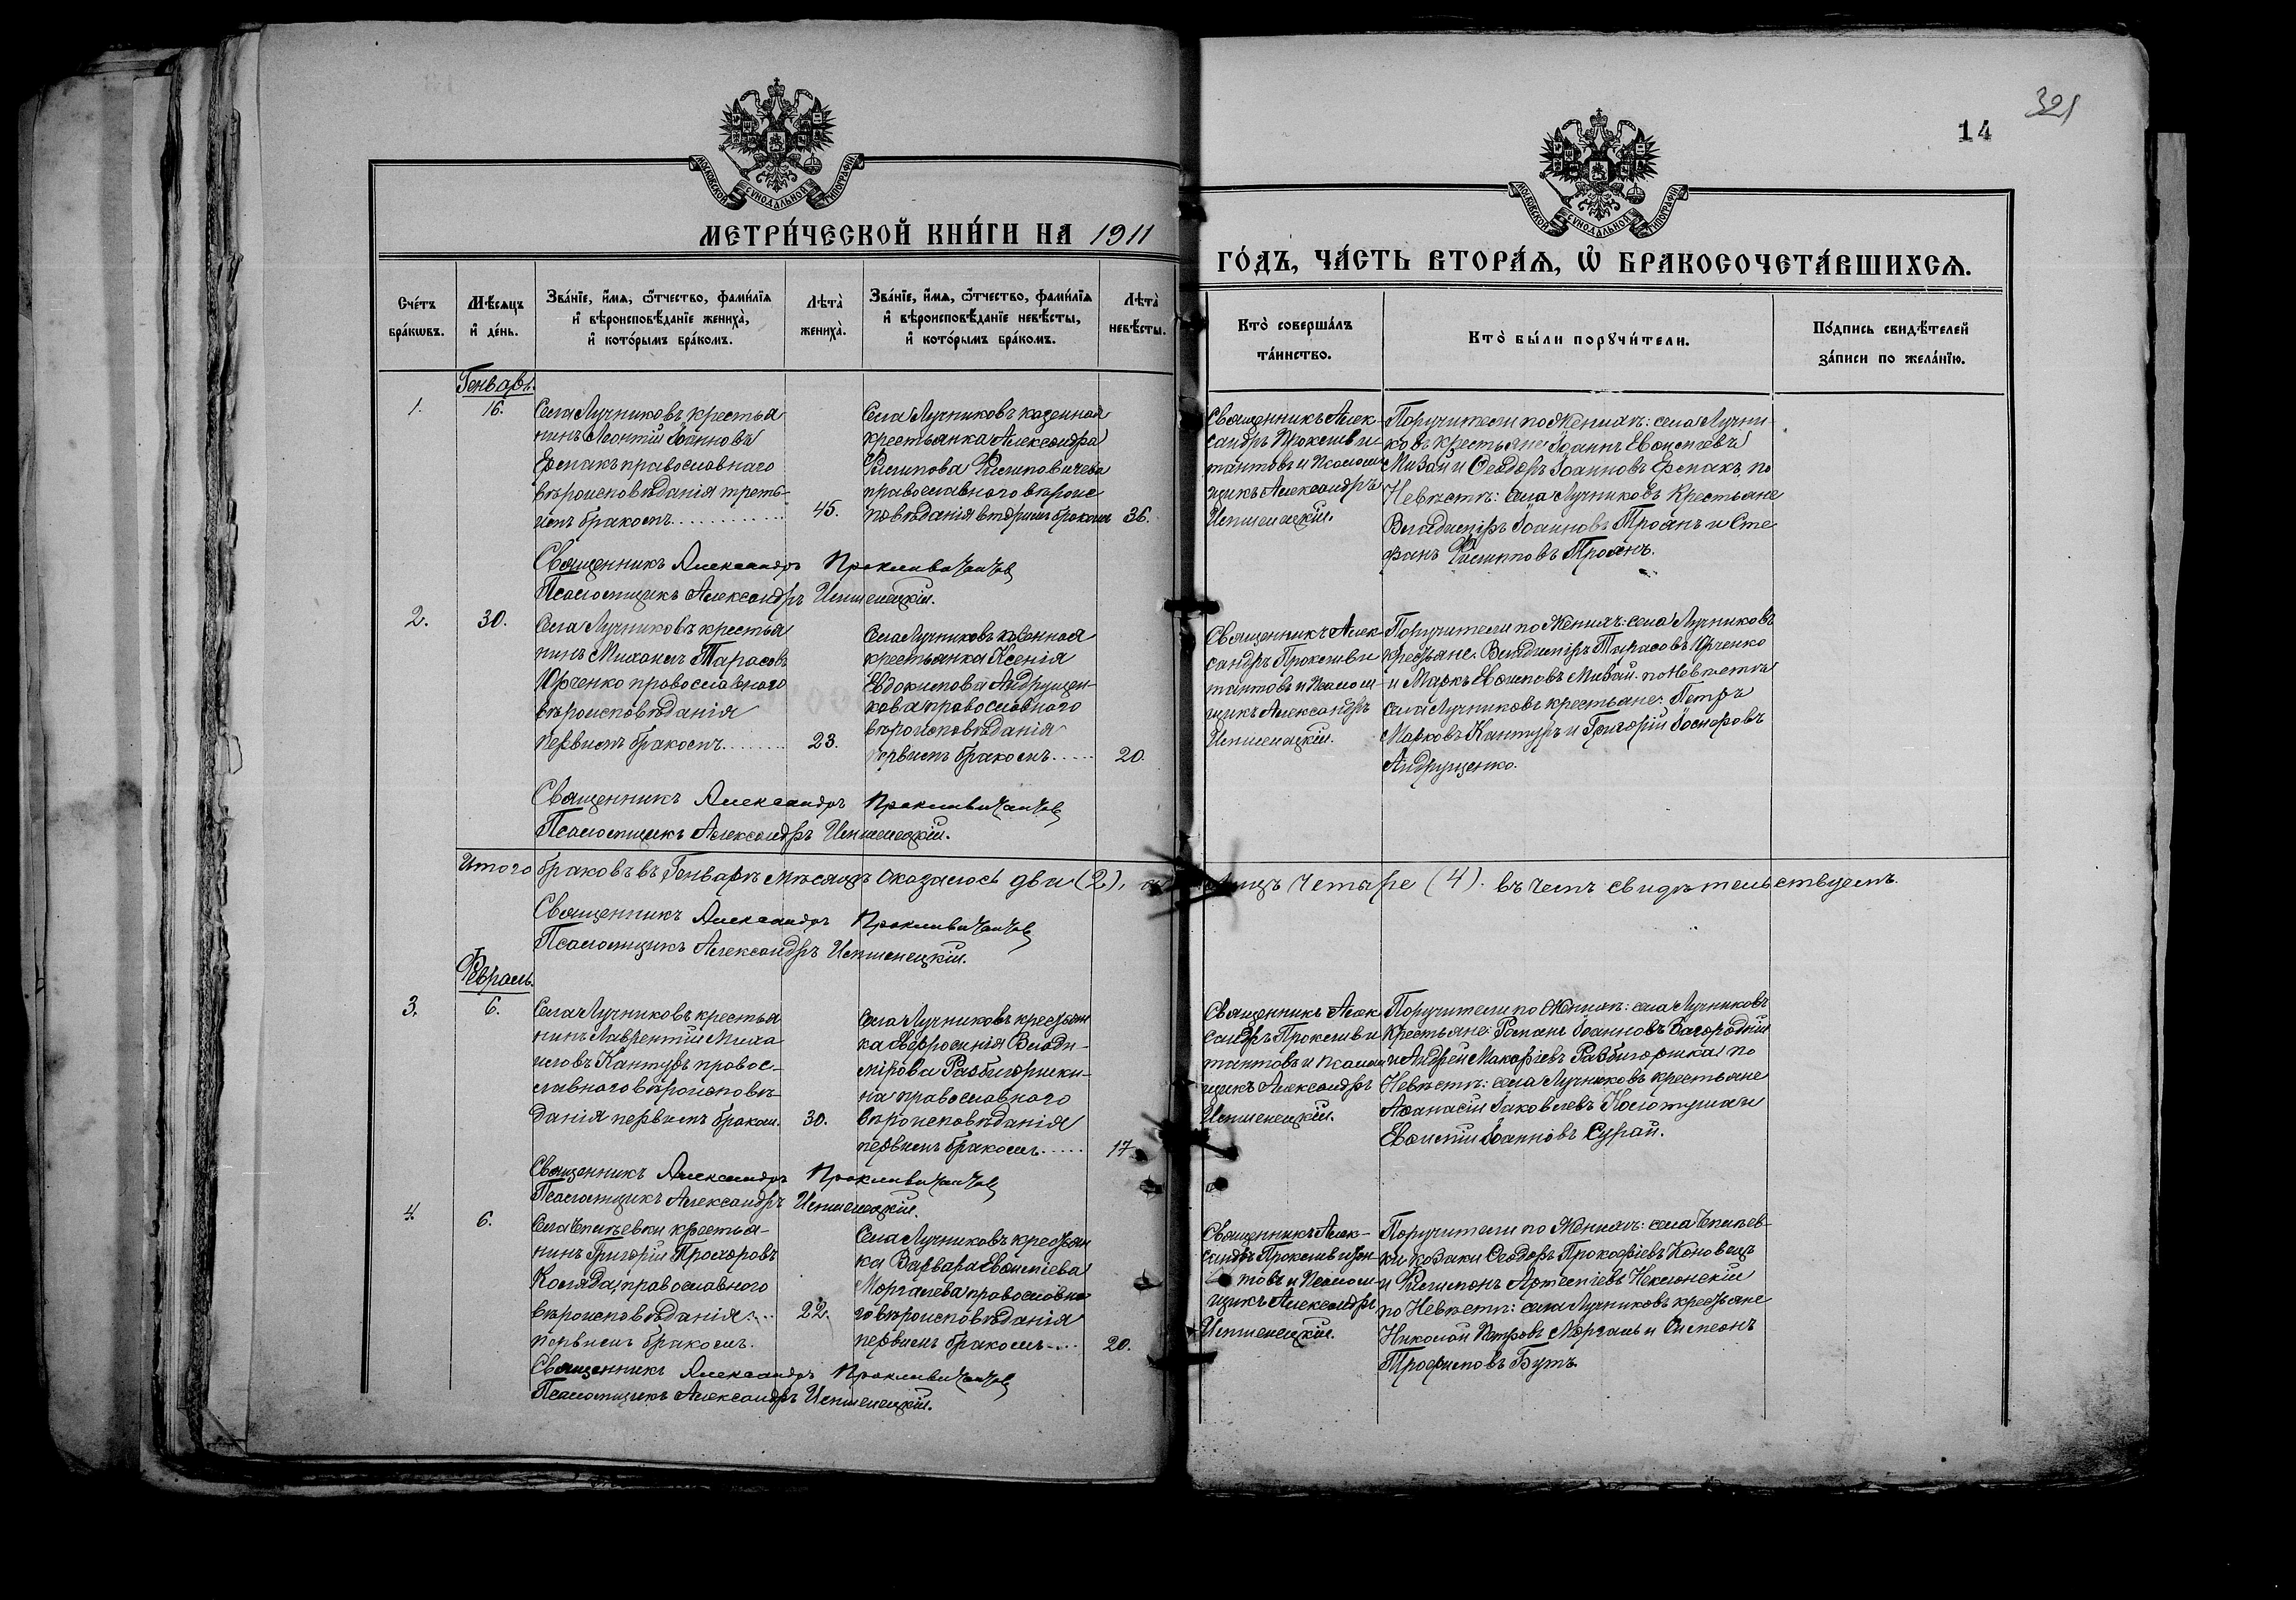 321
14
МОСКОВСКОЙ СѴНОДАЛЬНОЙ ТИПОГРАФІИ
МОСКОВСКОЙ СѴНОДАЛЬНОЙ ТИПОГРАФІИ
МЕТРИ́ЧЕСКОЙ КНИ́ГИ НА 1911
ГО́ДЪ, ЧА́СТЬ ВТОРА́Ѧ, Ѽ БРАКОСОЧЕТА́ВШИХСѦ.
Сче́тъ
бра́кѡвъ.
Мѣ́сяцъ
и҆ де́нь.
Зва́нїе, и҆́мѧ, ѻ҆́тчество, фами́лїѧ
и҆ вѣроисповѣ́данїе жениха̀,
и҆ кото́рымъ бра́комъ.
Лѣта̀
жениха̀.
Зва́нїе, и҆́мѧ, ѻ҆́тчество, фами́лїѧ
и҆ вѣроисповѣ́данїе невѣ́сты,
и҆ кото́рымъ бра́комъ.
Лѣта̀
невѣ́сты.
Кто̀ соверша́лъ
та́инство.
Кто̀ бы́ли порꙋчи́тели.
По́дпись свидѣ́телей
за́писи по жела́нїю.
Генварь.
1.
16.
Села Лучниковъ крестья
нинъ Леонтій Іоанновъ
Ермакъ православнаго
вѣроисповѣданія треть-
имъ бракомъ
45.
Села Лучниковъ казенная
крестьянка Александра
Филипова Филиповичева
православнаго вѣроис
повѣданія вторымъ бракомъ
36.
Священникъ Алек-
сандръ
и Псалом
щикъ Александръ
Поручители по Женихѣ: села Лучни-
ковъ крестьяне Іоаннъ
и Ѳеодоръ Іоанновъ Ермакъ, по
Невѣстѣ: села Лучниковъ Крестьяне
Владиміръ Іоанновъ Троянъ и Сте
фанъ Филиповъ Троянъ.
Священникъ Александръ
Псаломщикъ Александръ
2.
30.
Села Лучниковъ крестья
нинъ Михаилъ Тарасовъ
Юрченко православнаго
вѣроисповѣданія
первымъ бракомъ
23.
Села Лучниковъ казенная
крестьянка Ксенія
Евдокимова Андрущен-
кова православнаго
вѣроисповѣданія
первымъ бракомъ
20.
Священникъ Алек-
сандръ
и Псалом
щикъ Александръ
Поручители по Женихѣ: села Лучниковъ
крестьяне: Владиміръ Тарасовъ Юрченко
и Маркъ по Невѣстѣ
села Лучниковъ крестьяне: Петръ
Марковъ Кантуръ и Григорій Іосифовъ
Андрущенко.
Священникъ Александръ
Псаломщикъ Александръ
Итого браковъ въ Генварѣ мѣсяцѣ оказалось два (2), четыре (4). въ чемъ свидѣтельствуемъ.
Священникъ Александръ
Псаломщикъ Александръ
Февраль.
3.
6.
Села Лучниковъ крестья
нинъ Лаврентій Миха
иловъ Кантуръ правос-
лавнаго вѣроисповѣ-
данія первымъ браком.
30.
Села Лучниковъ крестьян
ка Евфросинія Влади-
мірова Разбигорики-
на православнаго
вѣроисповѣданія
первымъ бракомъ
17.
Священникъ Алек
сандръ
и Псалом
щикъ Александръ
Поручители по Женихѣ: села Лучниковъ
Крестьяне: Романъ Іоанновъ Загородній
и Андрей Макаріевъ по
Невѣстѣ: села Лучниковъ крестьяне
Аѳанасій Іаковлевъ и
Евѳимій Іоанновъ
Священникъ Александръ
Псаломщикъ Александръ
4.
6.
Села крестья-
нинъ Григорій Прохоровъ
Коляда, православнаго
вѣроисповѣданія
первымъ бракомъ.
22.
Села Лучниковъ крестьян
ка Варвара Евѳиміева
Моргалева православна
го вѣроисповѣданія
первымъ бракомъ
20.
Священникъ Алек-
сандръ
и Псалом-
щикъ Александръ
Поручители по Женихѣ: села
казаки Ѳеодоръ Прокофіевъ Коновецъ
и Филимонъ Артеміевъ
по Невѣстѣ: села Лучниковъ крестьяне
Николай Петровъ Моргаль и Симеонъ
Трофимовъ Бутъ.
Священникъ Александръ
Псаломщикъ Александръ